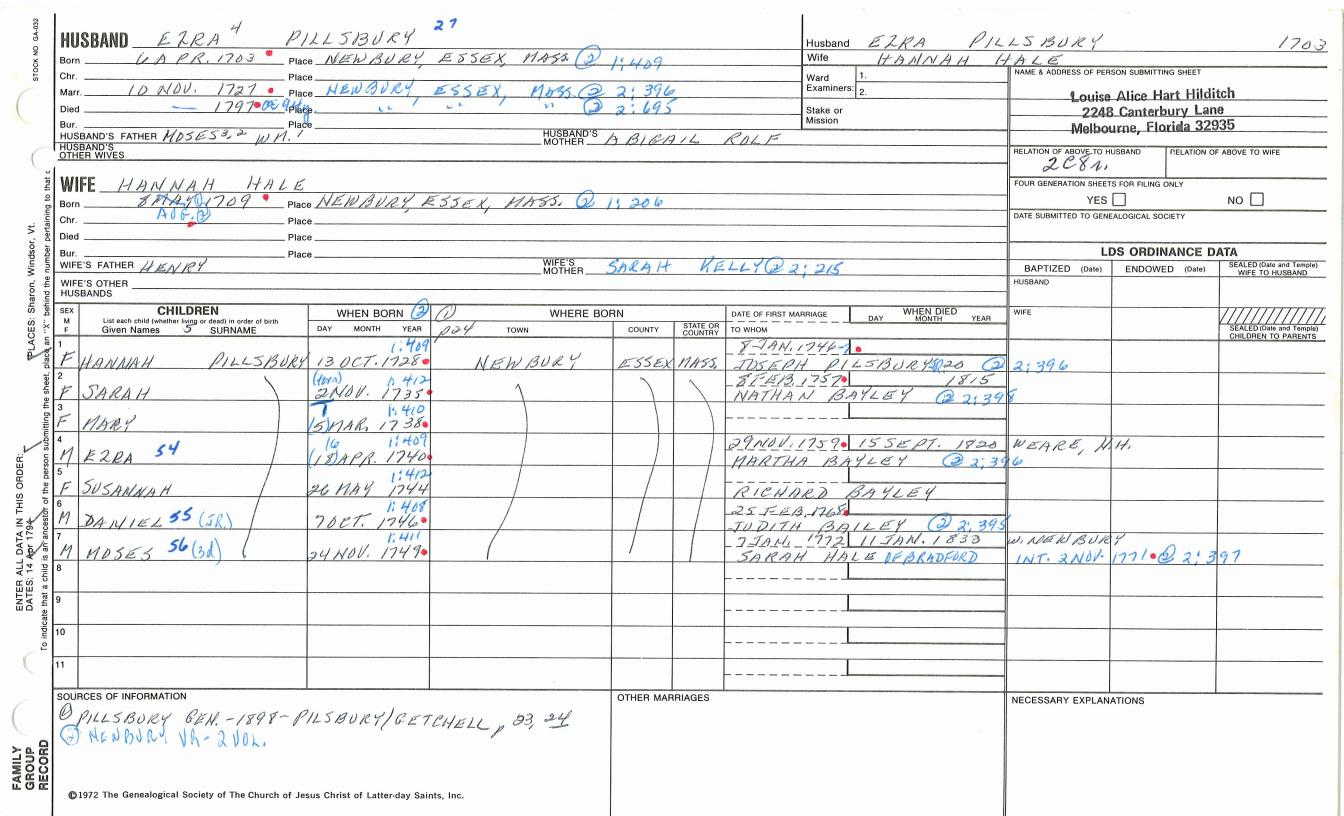 STOCK NO. GA-032
HUSBAND EZRA 4 PILLSBURY 27
Born 6 APR. 1703 Place NEWBURY, ESSEX, MASS. ② 1:409
Chr. Place
Marr. 10 NOV. 1727 Place NEWBURY, ESSEX, MASS. ② 2:396
Died — 1797 Place " " ② 2:695
Bur. Place
HUSBAND'S FATHER MOSES 3,2 WM. 1 HUSBAND'S MOTHER ABIGAIL ROLF
HUSBAND'S OTHER WIVES
Husband EZRA PILLSBURY 1703
Wife HANNAH HALE
Ward Examiners: 1.
2.
Stake or Mission
NAME & ADDRESS OF PERSON SUBMITTING SHEET
Louise Alice Hart Hilditch
2248 Canterbury Lane
Melbourne, Florida 32935
RELATION OF ABOVE TO HUSBAND RELATION OF ABOVE TO WIFE
2C8r.
FOUR GENERATION SHEETS FOR FILING ONLY
YES NO
DATE SUBMITTED TO GENEALOGICAL SOCIETY
WIFE HANNAH HALE
Born 8 MAY ① 1709 Place NEWBURY, ESSEX, MASS. ② 1:206
AUG. ②
Chr. Place
Died Place
Bur. Place
WIFE'S FATHER HENRY WIFE'S MOTHER SARAH KELLY ② 2:215
WIFE'S OTHER HUSBANDS
LDS ORDINANCE DATA
BAPTIZED (Date) ENDOWED (Date) SEALED (Date and Temple) WIFE TO HUSBAND
HUSBAND
WIFE
SEALED (Date and Temple) CHILDREN TO PARENTS
SEX M F CHILDREN WHEN BORN ② ① WHERE BORN DATE OF FIRST MARRIAGE WHEN DIED
List each child (whether living or dead) in order of birth
Given Names 5 SURNAME DAY MONTH YEAR p24 TOWN COUNTY STATE OR COUNTRY TO WHOM DAY MONTH YEAR
1 1:409 8 JAN. 1746-7
F HANNAH PILLSBURY 13 OCT. 1728 NEWBURY ESSEX MASS. JOSEPH PILLSBURY 120 ② 2:396
2 (torn) 1:412 8 FEB. 1757 1815
F SARAH 2 NOV. 1735 NATHAN BAYLEY ② 2:395
3 1:410
F MARY (5 MAR. 1738
4 16 1:409 29 NOV. 1759 15 SEPT. 1820 WEARE, N.H.
M EZRA 54 (18) APR. 1740 MARTHA BAYLEY ② 2:396
5 1:412
F SUSANNAH 26 MAY 1744 RICHARD BAYLEY
6 1:408 25 FEB. 1765
M DANIEL 55 (JR.) 7 OCT. 1746 JUDITH BAILEY ② 2:395
7 1:411 7 JAN. 1772 11 JAN. 1833 W. NEWBURY
M MOSES 56 (3d) 24 NOV. 1749 SARAH HALE OF BRADFORD INT. 2 NOV. 1771 ② 2:397
8
9
10
11
SOURCES OF INFORMATION OTHER MARRIAGES NECESSARY EXPLANATIONS
① PILLSBURY GEN. -1898- PILSBURY/GETCHELL, p 23, 24
② NEWBURY VR - 2 VOL.
©1972 The Genealogical Society of The Church of Jesus Christ of Latter-day Saints, Inc.
PLACES: Sharon, Windsor, Vt.
ENTER ALL DATA IN THIS ORDER:
DATES: 14 Apr 1794
To indicate that a child is an ancestor of the person submitting the sheet, place an "X" behind the number pertaining to that c
FAMILY
GROUP
RECORD